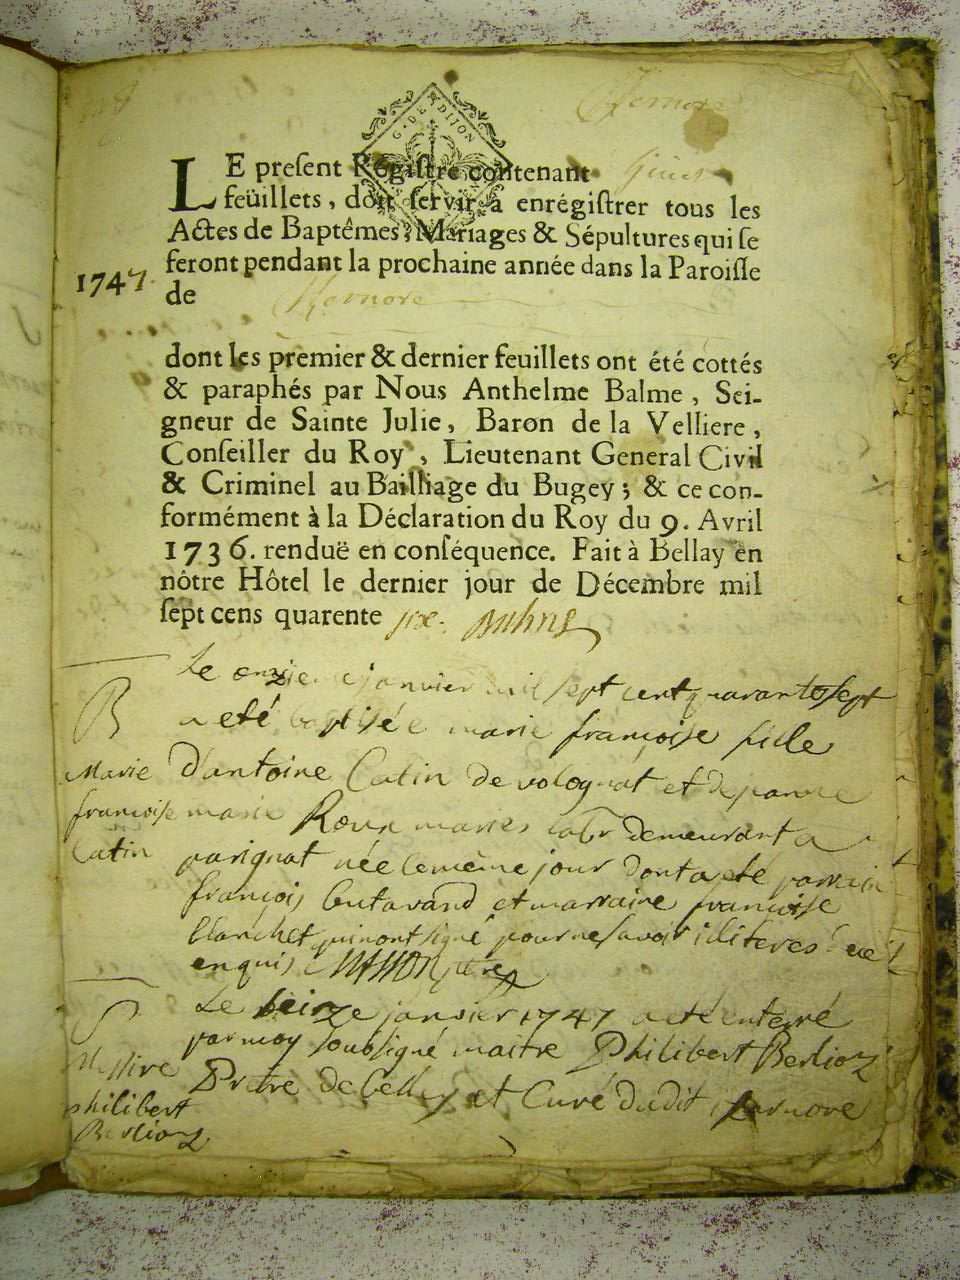 G. DE DIJON
LE preſent Regiſtre contenant
feüillets, doit ſervir à enrégiſtrer tous les
Actes de Baptêmes, Mariages & Sépultures qui ſe
feront pendant la prochaine année dans la Paroiſſe
1747.
de
dont les premier & dernier feuillets ont été cottés
& paraphés par Nous Anthelme Balme, Sei-
gneur de Sainte Julie, Baron de la Velliere,
Conſeiller du Roy, Lieutenant General Civil
& Criminel au Bailliage du Bugey; & ce con-
formément à la Déclaration du Roy du 9. Avril
1736. renduë en conſéquence. Fait à Bellay en
nôtre Hôtel le dernier jour de Décembre mil
ſept cens quarente six.
Le onzieme janvier mil sept cent quarante sept
B
a eté baptisée marie françoise fille
Marie
d'antoine Catin de volognat et de jeanne
françoise
marie Roux mariés demeurant a
Catin
parignat née le même jour dont a eté parrain
françois et marraine françoise
Blanchet qui n'ont signé pour ne savoir
enquis
Le seize janvier 1747 a eté enterré
S
par moy soubsigné maitre Philibert Berlioz
Messire
Prêtre de Belley et Curé dudit
philibert
Berlioz